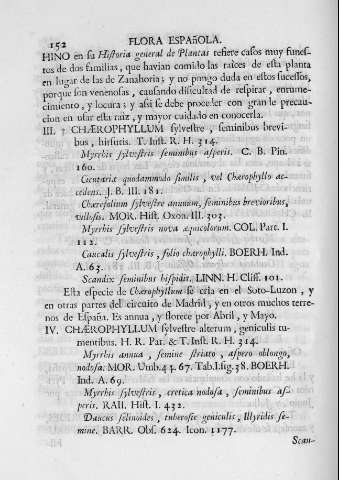 152 FLORA ESPAñOLA.
HINO en su Historia general de Plantas refiere casos muy funes-
tos de dos familias, que havian comido las raìces de esta planta
en lugar de las de Zanahoria; y no pongo duda en estos sucessos,
porque son venenosas, causando dificultad de respirar, entume-
cimiento, y locura; y assi se debe proceder con gran le precau-
cion en usar esta raiz, y mayor cuidado en conocerla.
III. † CHÆROPHYLLUM sylvestre, seminibus brevi-
bus, hirsutis. T. Inst. R. H. 314.
Myrrhis sylvestris seminibus asperis. C. B. Pin.
160.
Cicutariæ quodammodo similis, vel Chærophyllo ac-
cedens. J. B. III. 181.
Chærefolium sylvestre annuum, seminibus brevioribus,
villosis. MOR. Hist. Oxon. III. 303.
Myrrhis sylvestris nova æquicolorum. COL. Part. I.
112.
Caucalis sylvestris, folio chærophylli. BOERH. Ind.
A. 63.
Scandix seminibus hispidis. LINN. H. Cliff. 101.
Esta especie de Chærophyllum se cria en el Soto-Luzon, y
en otras partes del circuito de Madrid, y en otros muchos terre-
nos de España. Es annua, y florece por Abril, y Mayo.
IV. CHÆROPHYLLUM sylvestre alterum, geniculis tu-
mentibus. H. R. Par. & T. Inst. R. H. 314.
Myrrhis annua, semine striato, aspero oblongo,
nodosa. MOR. Umb. 47. 67. Tab. I. fig. 38. BOERH.
Ind. A. 69.
Myrrhis sylvestris, cretica nodosa, seminibus as-
peris. RAII. Hist. I. 432.
Daucus selinoides, tuberosis geniculis, Illyridis se-
mine. BARR. Obs. 624. Icon. 1177.
Scan-